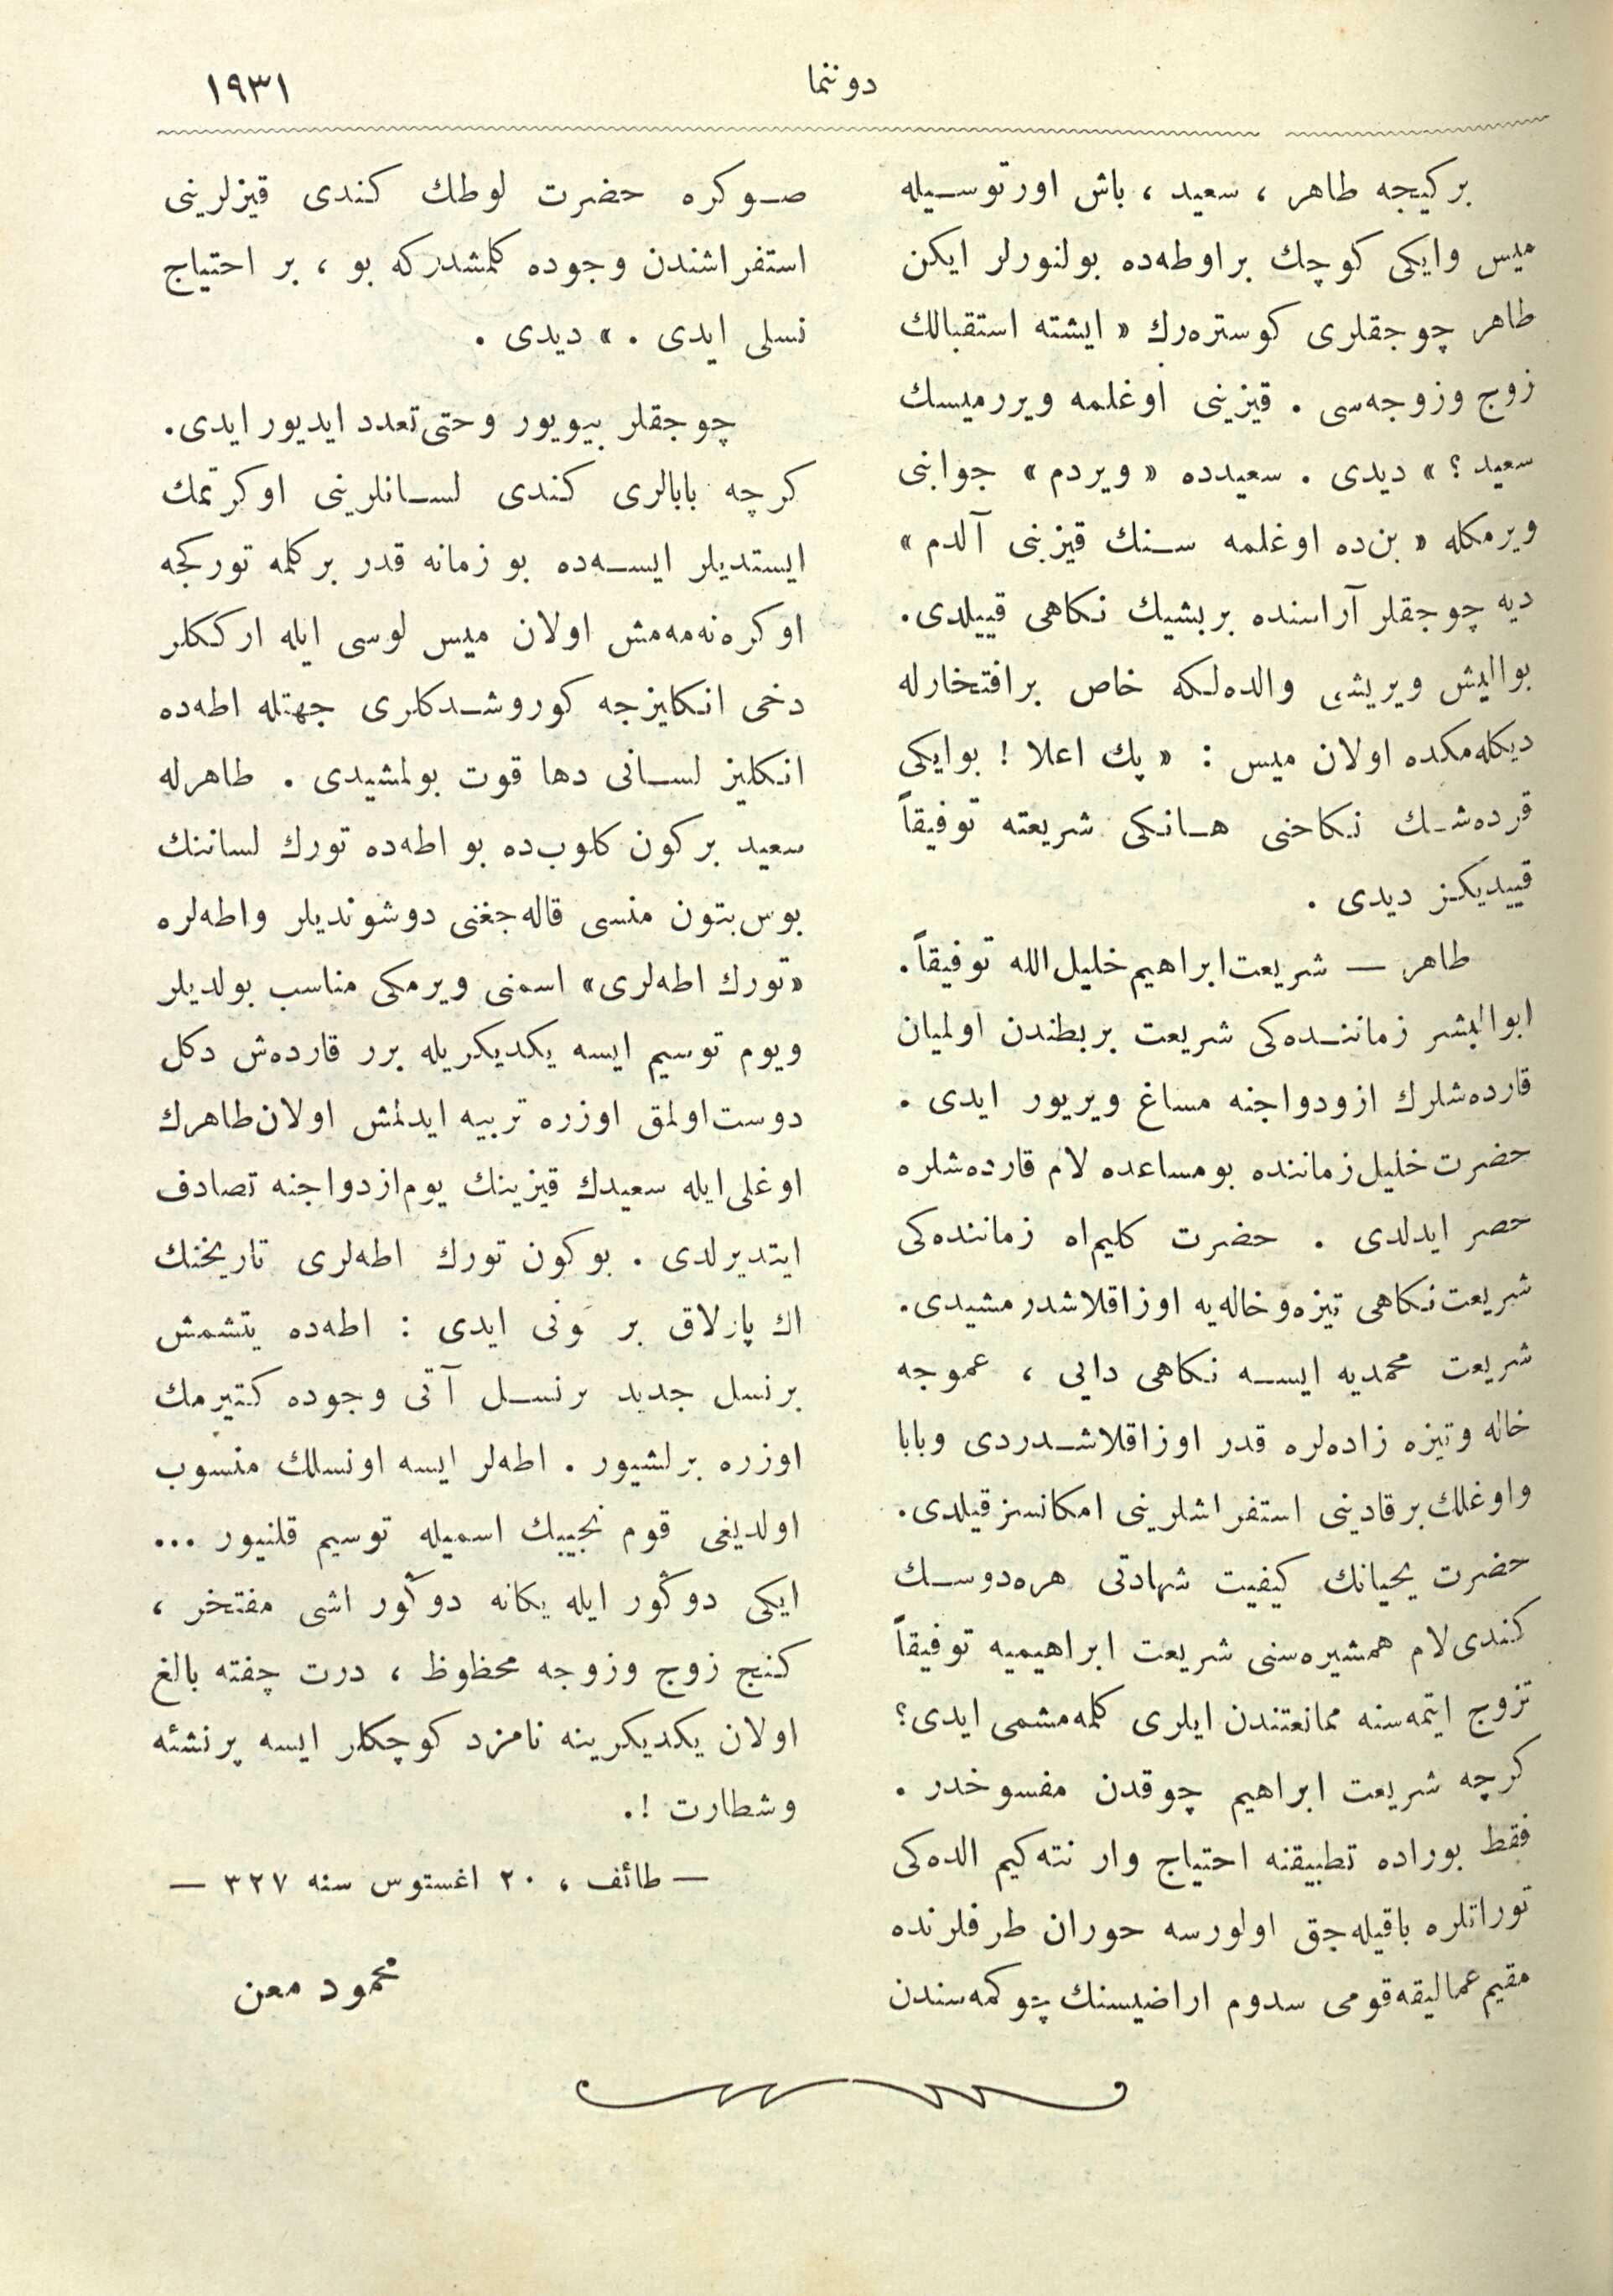 دوننما
١٩٣١
بر كيجه طاهر ، سعيد ، باش اورتوسـيله
ميس وايكى كوچك بر اوطه‌ده بولنورلر ايكن
طاهر چوجقلرى كوستره‌رك « ايشته استقبالك
زوج وزوجه‌سى . قيزينى اوغلمه ويررميسك
سعيد ؟ » ديدى . سعيدده « ويردم » جوابنى
ويرمكله « بن‌ده اوغلمه سـنك قيزينى آلدم »
ديه چوجقلر آراسنده بر بشيك نكاهى قييلدى.
بو اليش ويريشى والده‌لكه خاص بر افتخارله
ديكله‌مكده اولان ميس : « پك اعلا ! بو ايكى
قرده‌شـك نكاحنى هـانكى شريعته توفيقاً
قييديكز ديدى .
طاهر — شريعت ابراهيم خليل الله توفيقاً.
ابوالبشر زماننـده‌كى شريعت بر بطندن اولميان
قارده‌شلرك ازودواجنه مساغ ويريور ايدى .
حضرت خليل زماننده بو مساعده لام قارده‌شلره
حصر ايدلدى . حضرت كليم‌اه زماننده‌كى
شريعت نكاهى تيزه و خاله‌يه اوزاقلاشدرمشيدى.
شريعت محمديه ايسـه نكاهى دايى ، عموجه
خاله وتيزه زاده‌لره قدر اوزاقلاشـدردى وبابا
واوغلك بر قادينى استفراشلرينى امكانسز قيلدى.
حضرت يحيانك كيفيت شهادتى هره‌دوسـك
كندى لام همشيره‌سنى شريعت ابراهيميه توفيقاً
تزوج ايتمه‌سنه ممانعتندن ايلرى كلمه‌مشمى ايدى؟
كرچه شريعت ابراهيم چوقدن مفسوخدر .
فقط بوراده تطبيقنه احتياج وار نته‌كيم الده‌كى
توراتلره باقيله‌جق اولورسه حوران طرفلرنده
مقيم عماليقه قومى سدوم اراضيسنك چوكمه‌سندن
صـوكره حضرت لوطك كندى قيزلرينى
استفراشندن وجوده كلمشدركه بو ، بر احتياج
نسلى ايدى . » ديدى .
چوجقلر بيويور وحتى تعدد ايديور ايدى.
كرچه بابالرى كندى لسـانلرينى اوكرتمك
ايستديلر ايسـه‌ده بو زمانه قدر بر كلمه توركجه
اوكره‌نه‌مه‌مش اولان ميس لوسى ايله اركکلر
دخى انكايزجه كوروشـدكلرى جهتله اطه‌ده
انكليز لسـانى دها قوت بولمشيدى . طاهرله
سعيد بر كون كلوب‌ده بو اطه‌ده تورك لساننك
بوس بتون منسى قاله‌جغنى دوشونديلر واطه‌لره
«تورك اطه‌لرى» اسمنى ويرمكى مناسب بولديلر
ويوم توسيم ايسه يكديكريله برر قارده‌ش دكل
دوست اولمق اوزره تربيه ايدلمش اولان طاهرك
اوغلى ايله سعيدك قيزينك يوم ازدواجنه تصادف
ايتديرلدى . بو كون تورك اطه‌لرى تاريخنك
اك پارلاق بر ‌ونى ايدى : اطه‌ده يتشمش
بر نسل جديد بر نسـل آتى وجوده كتيرمك
اوزره برلشيور . اطه‌لر ايسه او نسلك منسوب
اولديغى قوم نجيبك اسميله توسيم قلنيور ...
ايكى دوڭور ايله يكانه دوڭور اشى مفتخر ،
كنج زوج وزوجه محظوظ ، درت چفته بالغ
اولان يكديكرينه نامزد كوچكلر ايسه پر نشئه
وشطارت !.
— طائف ، ٢٠ اغستوس سنه ٣٢٧ —
محمود معن